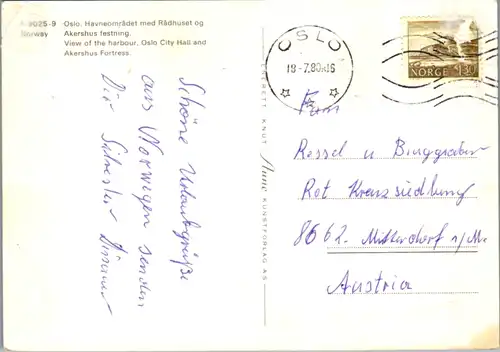 N-9025-9 Oslo. Havneområdet med Rådhuset og
Norway Akershus festning.
View of the harbour, Oslo City Hall and
Akershus Fortress.
Schöne Urlaubsgrüße
aus Norwegen senden
Die Silvester
OSLO
18-7.80-16
NORGE 130
ENERETT KNUT Aune KUNSTFORLAG AS
Fam
Ressel u Burggraber
Rot Kreuzsiedlung
8662. Mitterdorf i/M.
Austria